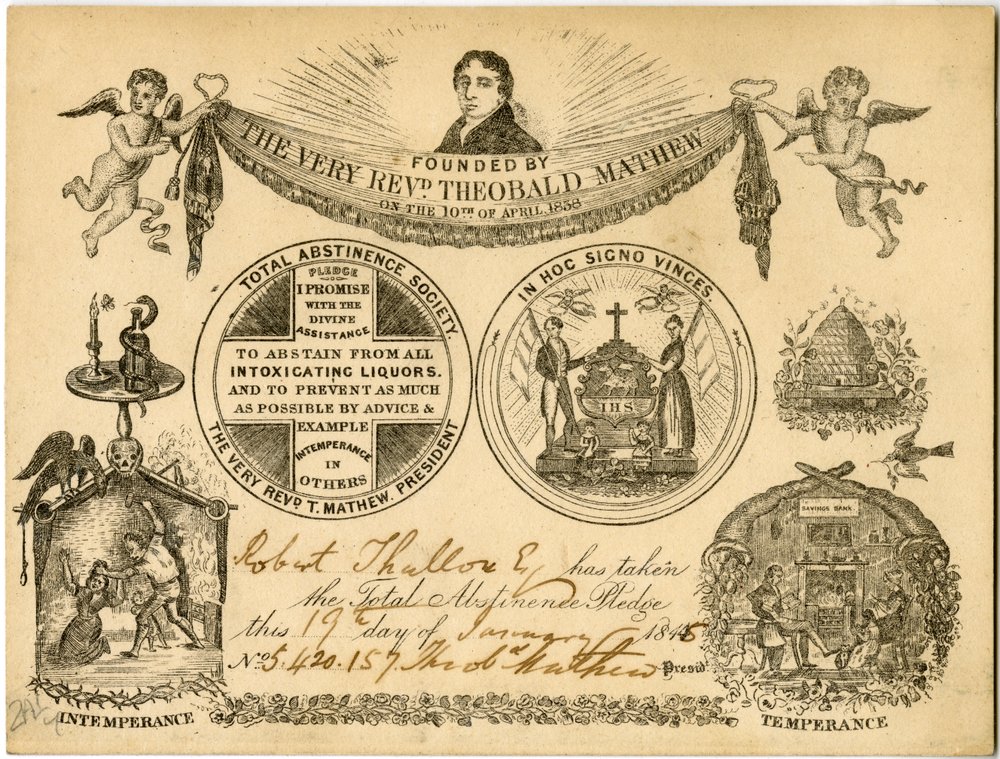 FOUNDED BY
THE VERY REVD. THEOBALD MATHEW
ON THE 10TH OF APRIL, 1838
TOTAL ABSTINENCE SOCIETY.
PLEDGE
I PROMISE
WITH THE
DIVINE
ASSISTANCE
TO ABSTAIN FROM ALL
INTOXICATING LIQUORS.
AND TO PREVENT AS MUCH
AS POSSIBLE BY ADVICE &
EXAMPLE
INTEMPERANCE
IN
OTHERS
THE VERY REVD. T. MATHEW. PRESIDENT
IN HOC SIGNO VINCES.
IHS
SAVINGS BANK
Robert Thallon Eq has taken
the Total Abstinence Pledge
this 19th day of January 1845
No. 5.420.157 Theobd Mathew Presidt
INTEMPERANCE
TEMPERANCE